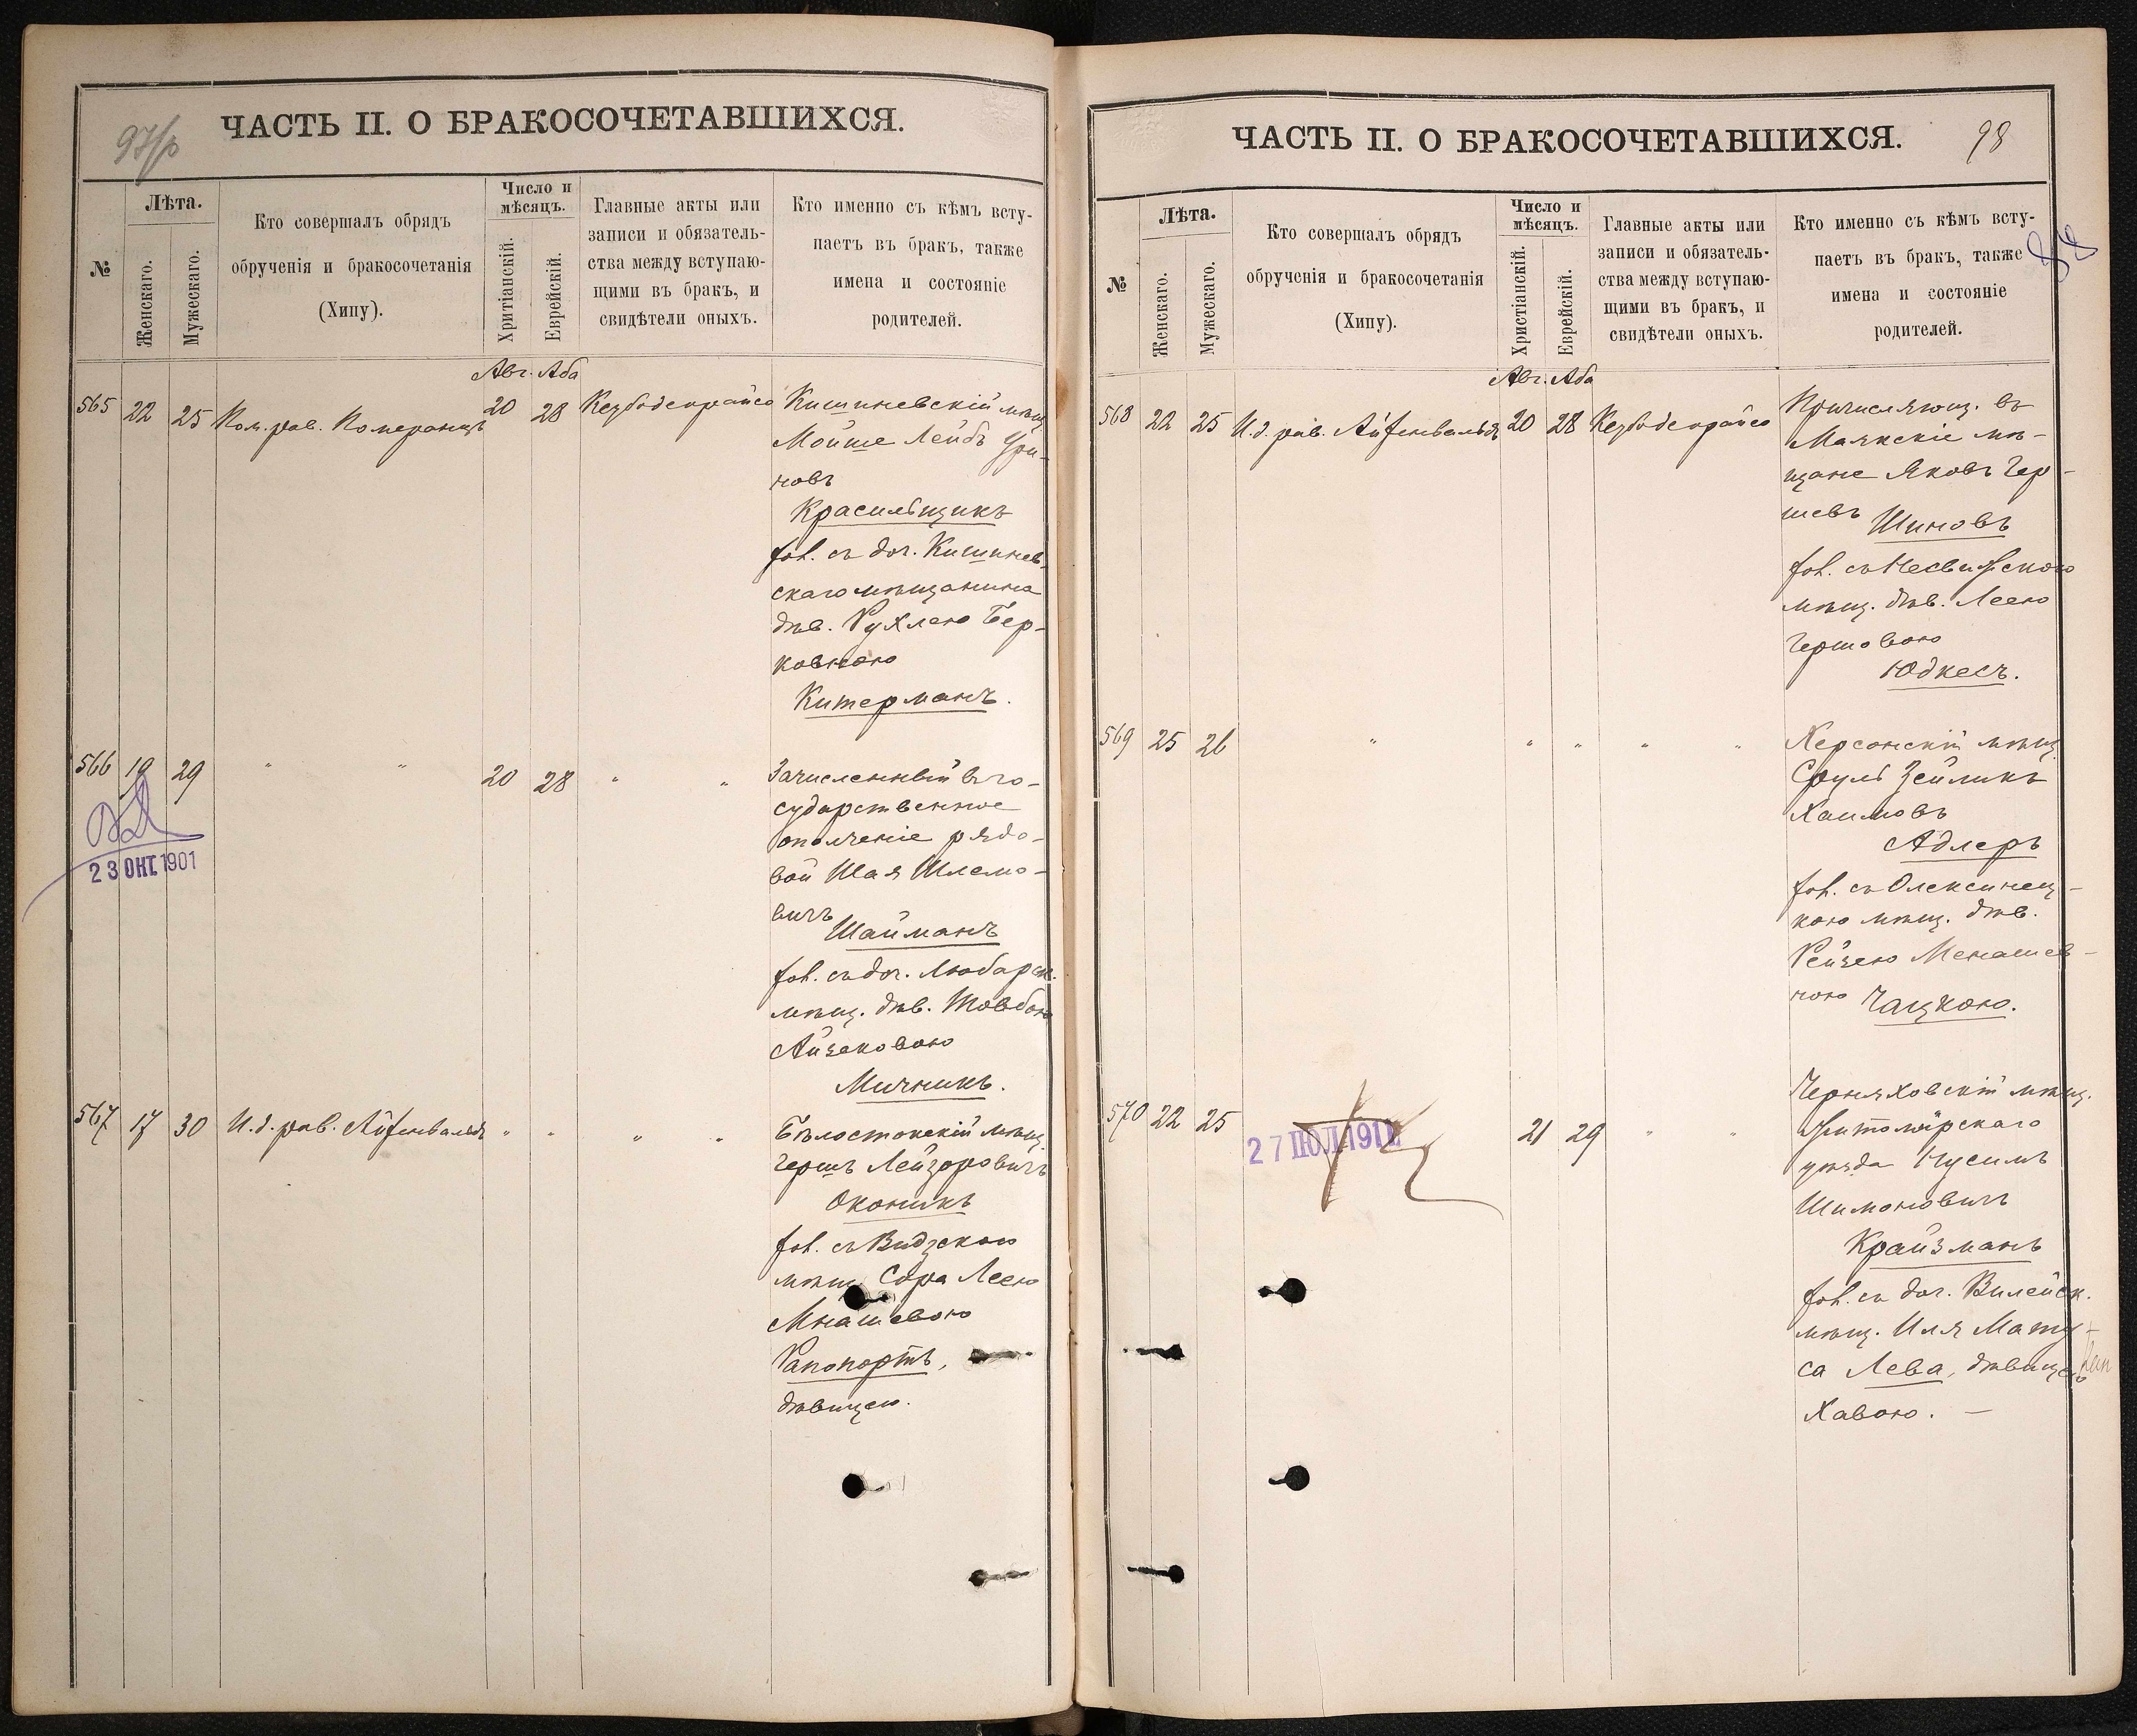 97/р
ЧАСТЬ II. О БРАКОСОЧЕТАВШИХСЯ.
№
Лѣта.
Женскаго.
Мужескаго.
Кто совершалъ обрядъ
обрученія и бракосочетанія
(Хипу).
Число и
мѣсяцъ.
Хритіанскій.
Еврейскій.
Главные акты или
записи и обязатель-
ства между вступаю-
щими въ бракъ, и
свидѣтели оныхъ.
Кто именно съ кѣмъ всту-
паетъ въ бракъ, также
имена и состояніе
родителей.
Авг. Аба
565 22 25 Пом. рав. Померанцъ 20 28 Кезубодеорайсо Кишиневскій мѣщ.
Мойше Лейбъ Ури-
новъ
Красильщикъ
хол. съ доч. Кишинев-
скаго мѣщанина
дѣв. Рухлею Бер-
ковною
Китерманъ.
566 19 29 " " 20 28 " " Зачисленный въ го-
сударственное
ополченіе рядо-
вой Шая Шлемо-
вичъ
Шайманъ
хол. съ доч. Любарск.
мѣщ. дѣв. Товбою
Айзековою
Мичникъ.
23 ОКТ. 1901
567 17 30 И. д. рав. Айзенвальдъ " " " " Бѣлостокскій мѣщ.
Гершъ Лейзоровичъ
Оконикъ
хол. съ Видзскою
мѣщ. Сора Леею
Мнашевою
Рапопортъ,
дѣвицею.
ЧАСТЬ II. О БРАКОСОЧЕТАВШИХСЯ.
98
№
Лѣта.
Женскаго.
Мужескаго.
Кто совершалъ обрядъ
обрученія и бракосочетанія
(Хипу).
Число и
мѣсяцъ.
Христіанскій.
Еврейскій.
Главные акты или
записи и обязатель-
ства между вступаю-
щими въ бракъ, и
свидѣтели оныхъ.
Кто именно съ кѣмъ всту-
паетъ въ бракъ, также
имена и состояніе
родителей.
Авг. Аба
568 22 25 И. д. рав. Айзенвальдъ 20 28 Кезубодеорайсо Причисляющ. въ
Маякскіе мѣ-
щане Яковъ Гер-
шевъ Шиновъ
хол. съ Несвижскою
мѣщ. дѣв. Леею
Гершовою
Юдкесъ.
569 25 26 " " " " " Херсонскій мѣщ.
Сруль Зейликъ
Хаимовъ
Адлеръ
хол. съ Олексинец-
кою мѣщ. дѣв.
Рейзею Менашев-
ною Чацкою.
570 22 25 21 29 " " Черняховскій мѣщ.
Житомірскаго
уѣзда Нусимъ
Шимоновичъ
Крайзманъ
хол. съ доч. Вилейск.
мѣщ. Иля Мату-
са Лева, дѣвицею
Хавою. —
27 ІЮЛ. 1911